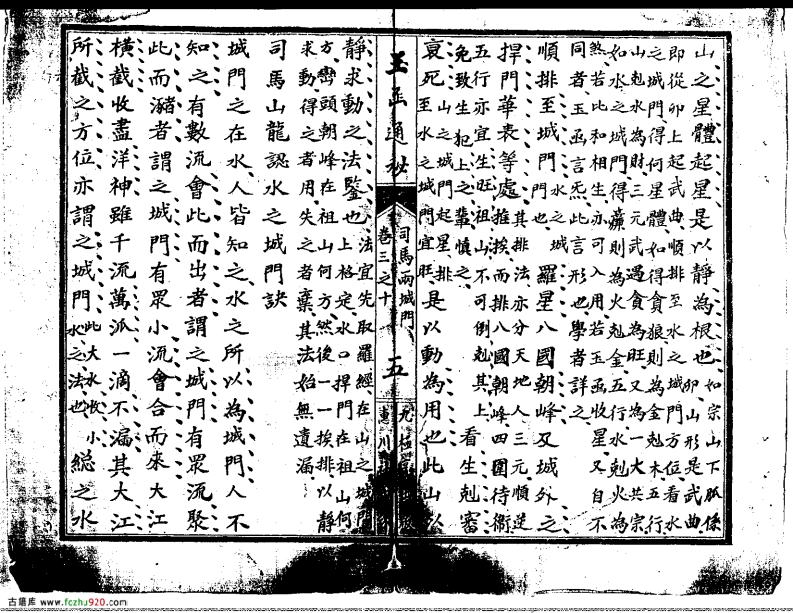 山之星體起星是以靜為根也如宗山下脈係
卯山形是武曲
即從卯上起武曲順排至水之城門方位看水
之城門得何星體如得貪狼則為金剋木五行
山剋水為財三元武遇貪為旺又為一大共宗
如水之城門得廉則為火剋金五行水剋火為
煞若此和相生亦可入用若玉函收星又自不
同者玉函言炁此言形也學者詳之
順排至城門水之城門也羅星八國朝峰及城外之
捍門華表等處其排法亦分天地人三元順逆
推挨而排八國朝峰四圍待衛
五行亦宜生旺祖山不可倒剋其上看生剋審
免致生犯上之輩慎之
衰死山之城門起星排
至水之城門宜旺是以動為用也此山以
玉函通秘
司馬兩城門
卷三之十
五
靜求動之法鑒也法宜先取羅經在山之城門
上格定水口捍門在祖山何
方巒頭朝峰在祖山何方然後一一挨排以靜
求動得之者用失之者棄其法始無遺漏
司馬山龍認水之城門訣
城門之在水人皆知之水之所以為城門人不
知之有數流會此而出者謂之城門有眾流聚
此而瀦者謂之城門有眾小流會合而來大江
橫截收盡洋神雖千流萬派一滴不漏其大江
所截之方位亦謂之城門此大水收小
水之法也總之水
古籍库 www.fczhu920.com